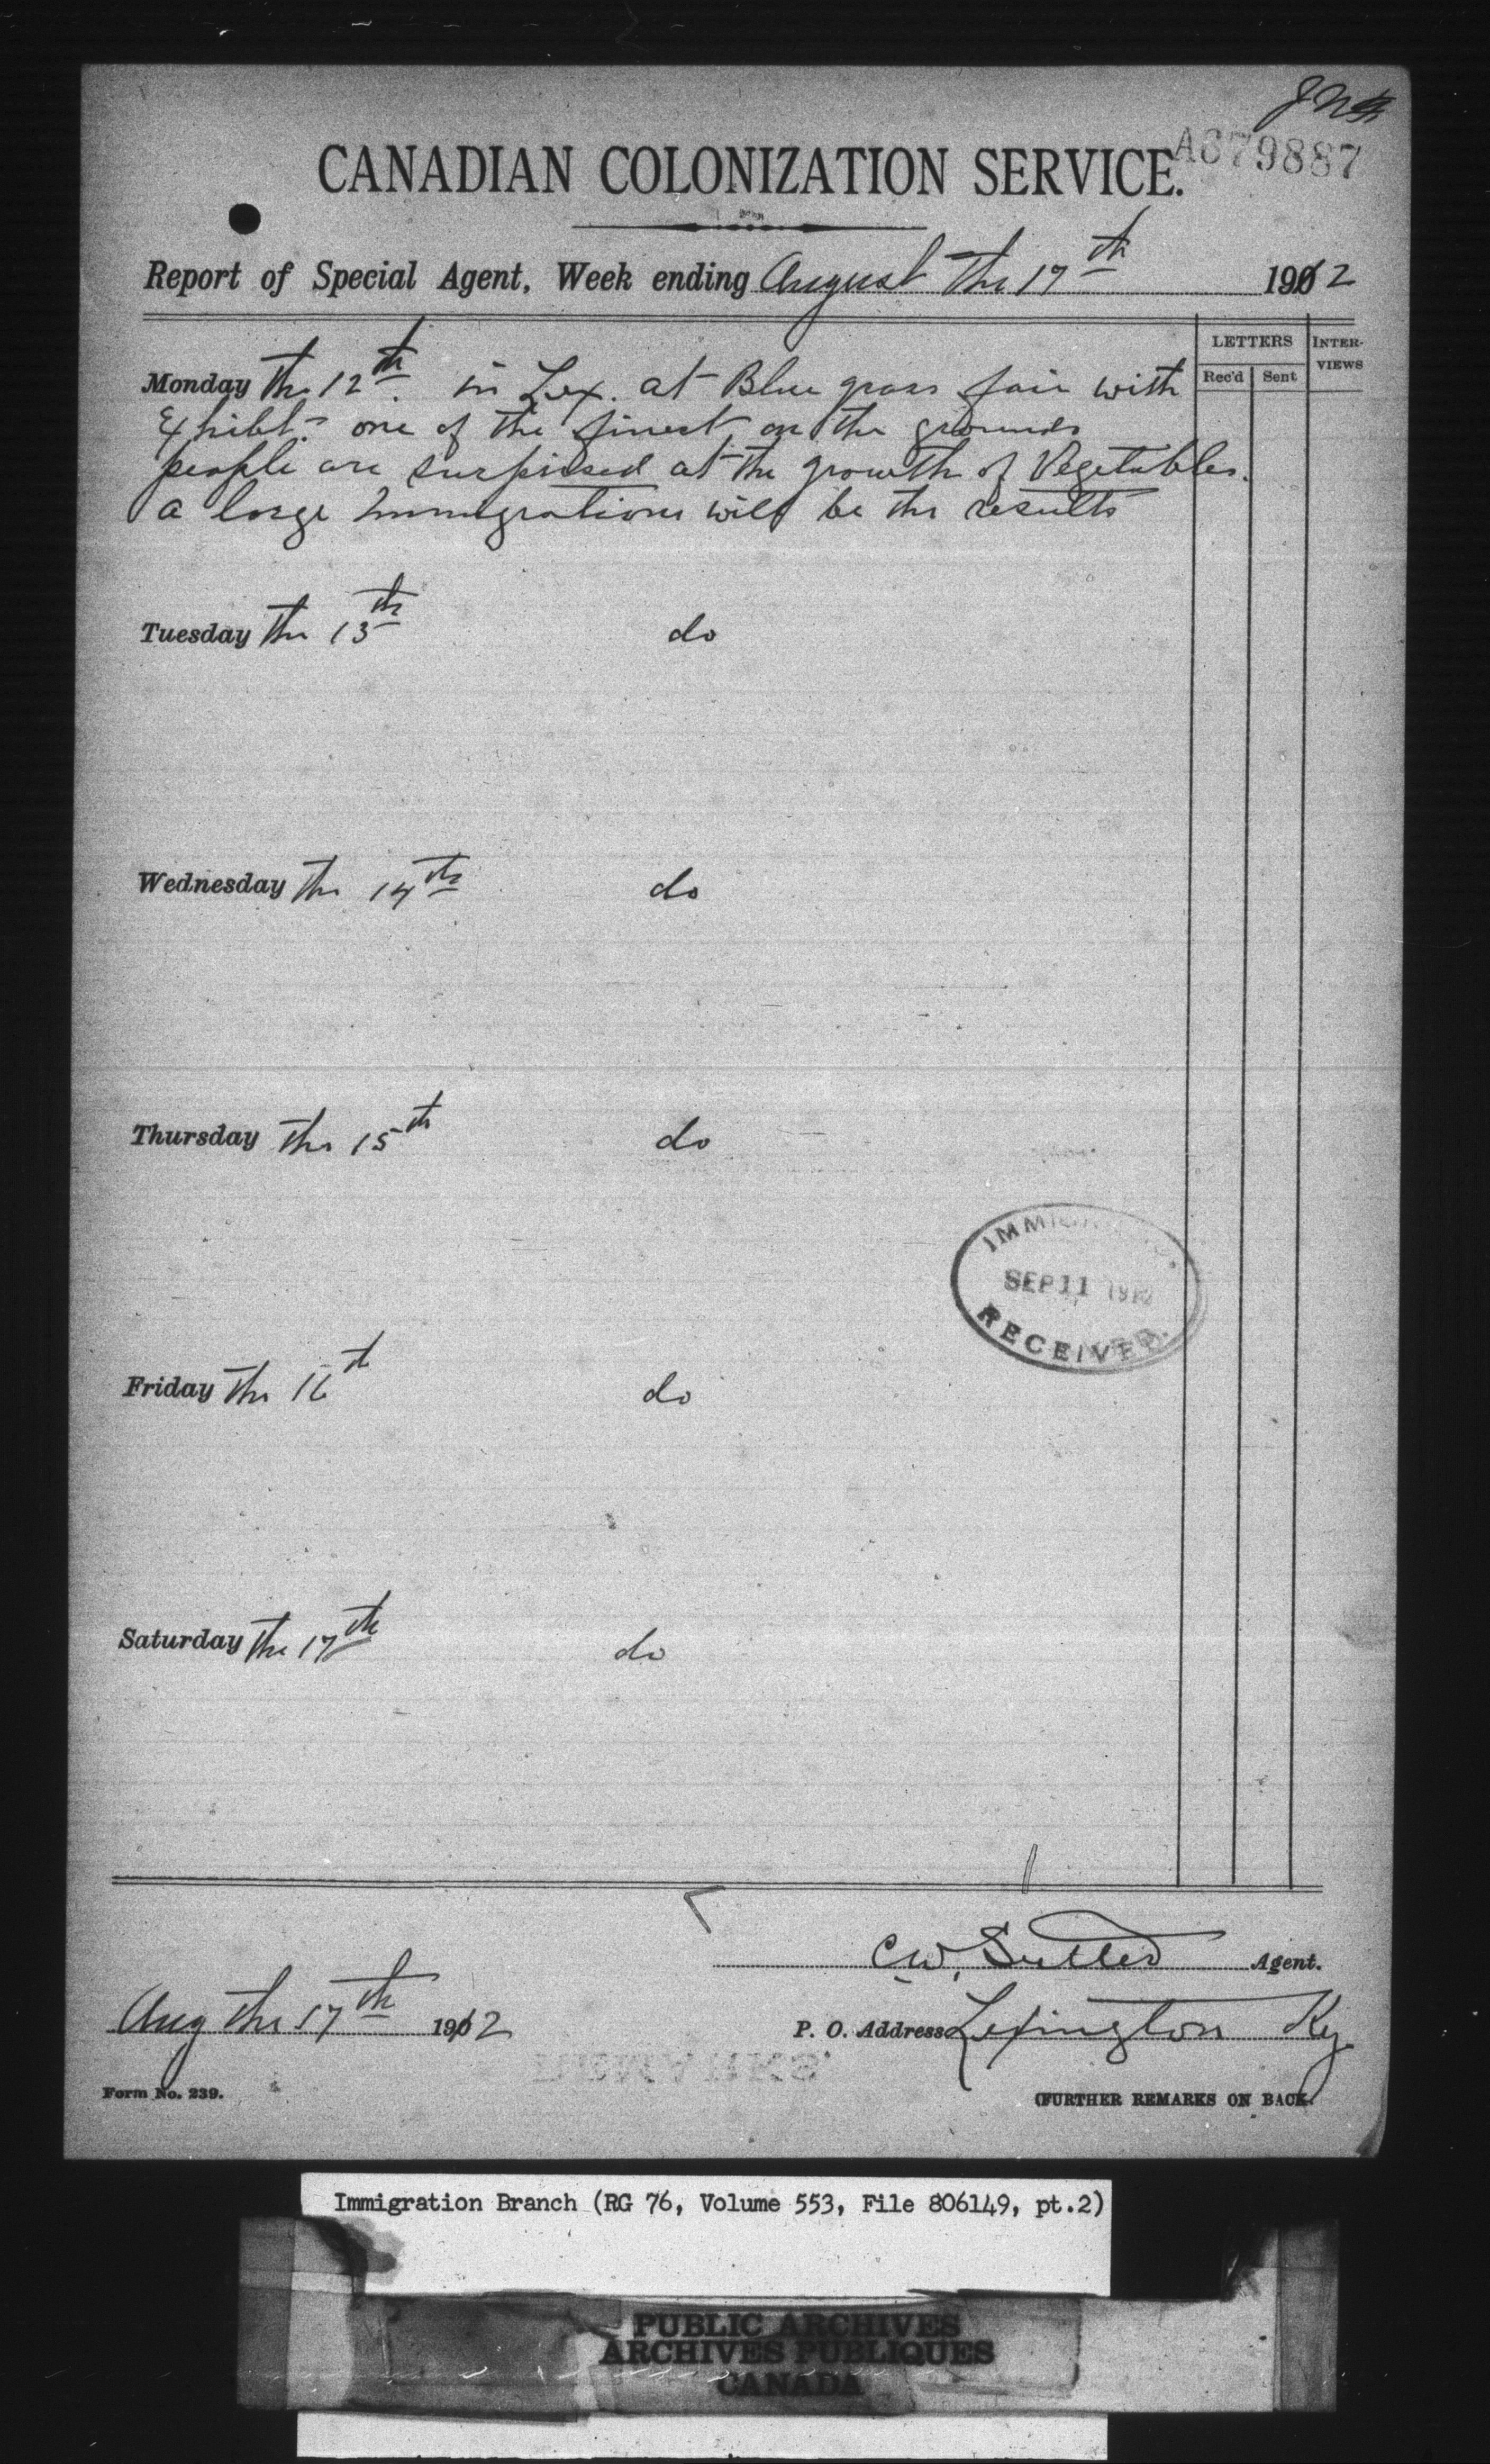 A879887
CANADIAN COLONIZATION SERVICE.
Report of Special Agent, Week ending August the 17th 1912
LETTERS INTER-VIEWS
Rec'd Sent
Monday the 12th. in Lex. at Blue grass fair with
Exhibt. one of the finest on the grounds
people are surprised at the growth of Vegetables.
a large Immigrations will be the results
Tuesday the 13th do
Wednesday the 14th do
Thursday the 15th do
SEP 11 1912
RECEIVED.
Friday the 16th do
Saturday the 17th do
C.W. Agent.
Aug the 17th 1912 P. O. Address Lexington Ky
REMARKS.
Form No. 239. (FURTHER REMARKS ON BACK.
Immigration Branch (RG 76, Volume 553, File 806149, pt.2)
PUBLIC ARCHIVES
ARCHIVES PUBLIQUES
CANADA